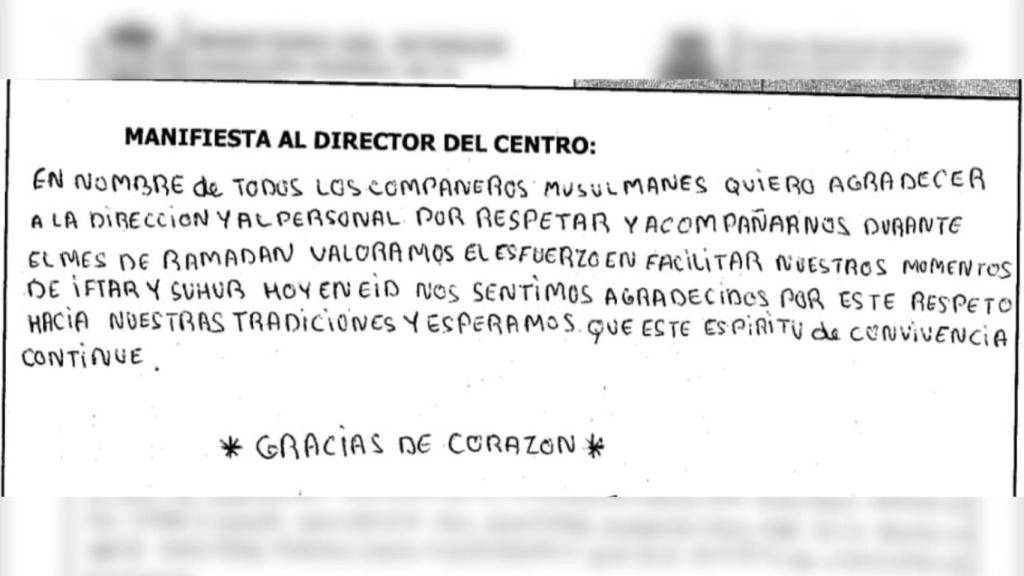 MANIFIESTA AL DIRECTOR DEL CENTRO:
EN NOMBRE de TODOS LOS COMPAÑEROS MUSULMANES QUIERO AGRADECER
A LA DIRECCION Y AL PERSONAL POR RESPETAR Y ACOMPAÑARNOS DURANTE
EL MES DE RAMADAN VALORAMOS EL ESFUERZO EN FACILITAR NUESTROS MOMENTOS
DE IFTAR Y SUHUR HOY EN EID NOS SENTIMOS AGRADECIDOS POR ESTE RESPETO
HACIA NUESTRAS TRADICIONES Y ESPERAMOS QUE ESTE ESPIRITU de CONVIVENCIA
CONTINUE.
* GRACIAS DE CORAZON *